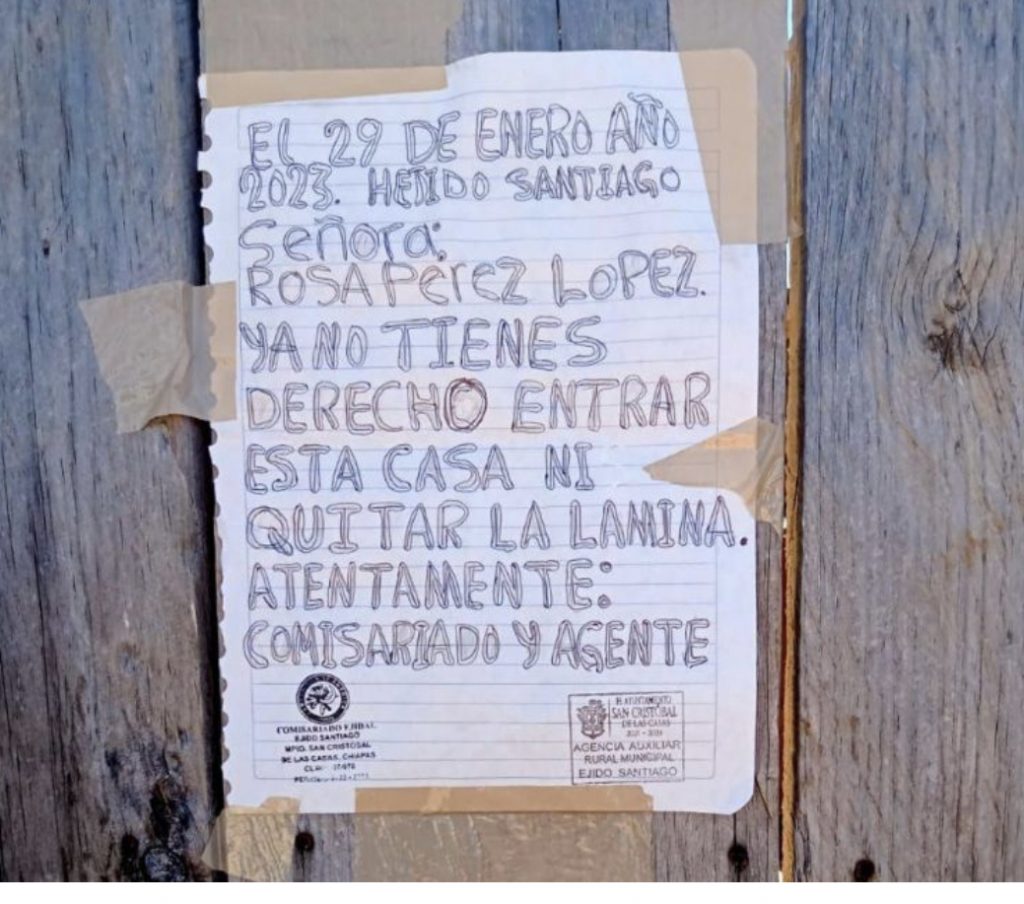 EL 29 DE ENERO AÑO
2023. HEJIDO SANTIAGO
Señora:
ROSA PEREZ LOPEZ.
YA NO TIENES
DERECHO ENTRAR
ESTA CASA NI
QUITAR LA LAMINA.
ATENTAMENTE:
COMISARIADO Y AGENTE
COMISARIADO EJIDAL
EJIDO SANTIAGO
MPIO. SAN CRISTOBAL
DE LAS CASAS, CHIAPAS
H. AYUNTAMIENTO
SAN CRISTÓBAL
DE LAS CASAS
AGENCIA AUXILIAR
RURAL MUNICIPAL
EJIDO, SANTIAGO